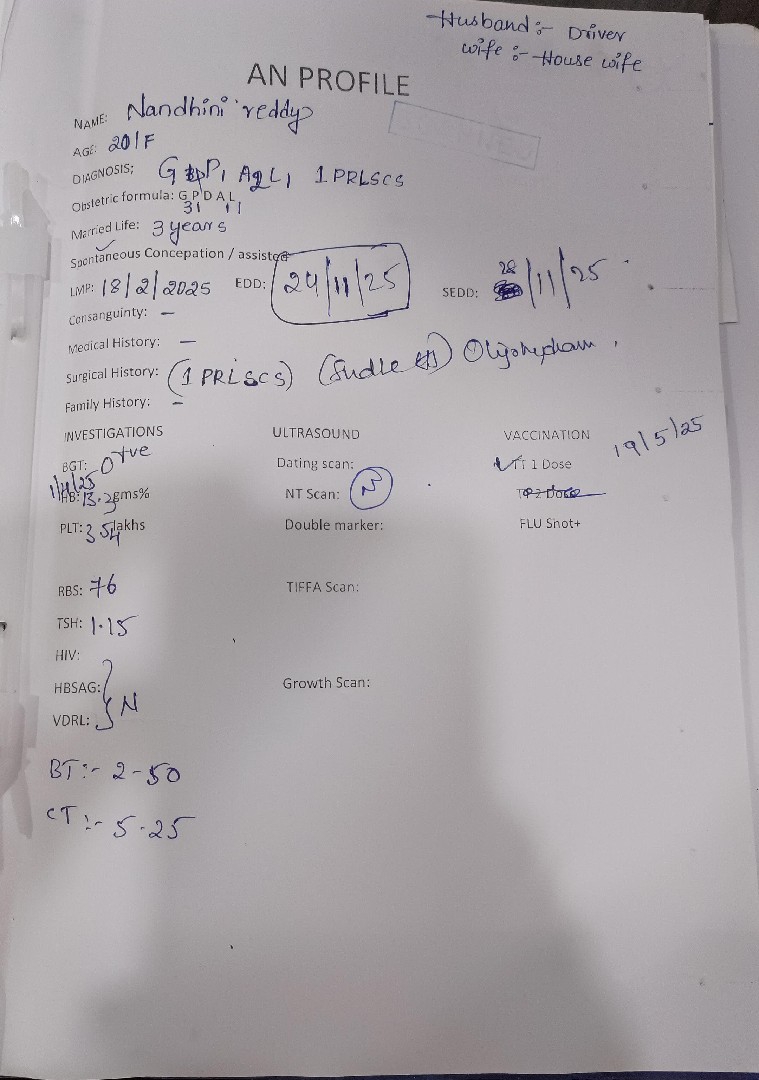 Husband :- Driver
wife :- House wife
AN PROFILE
NAME: Nandhini reddy
AGE: 20/F
DIAGNOSIS; G P1 A2L1 1 PRLSCS
Obstetric formula: G P D A L
3 1 1 1
Married Life: 3 years
Spontaneous Concepation / assisted
LMP: 18/2/2025 EDD: 24/11/25 SEDD: 28/11/25
Consanguinty: –
Medical History: –
Surgical History: (1 PRLSCS)
Family History: –
INVESTIGATIONS ULTRASOUND VACCINATION 19/5/25
BGT: O+ve Dating scan: ✓TT 1 Dose
HB: 13.3gms% NT Scan: N TT 2 Dose
PLT: 3.54lakhs Double marker: FLU Snot+
RBS: 76 TIFFA Scan:
TSH: 1.15
HIV:
HBSAG: Growth Scan:
VDRL: } N
BT :- 2-50
CT :- 5.25